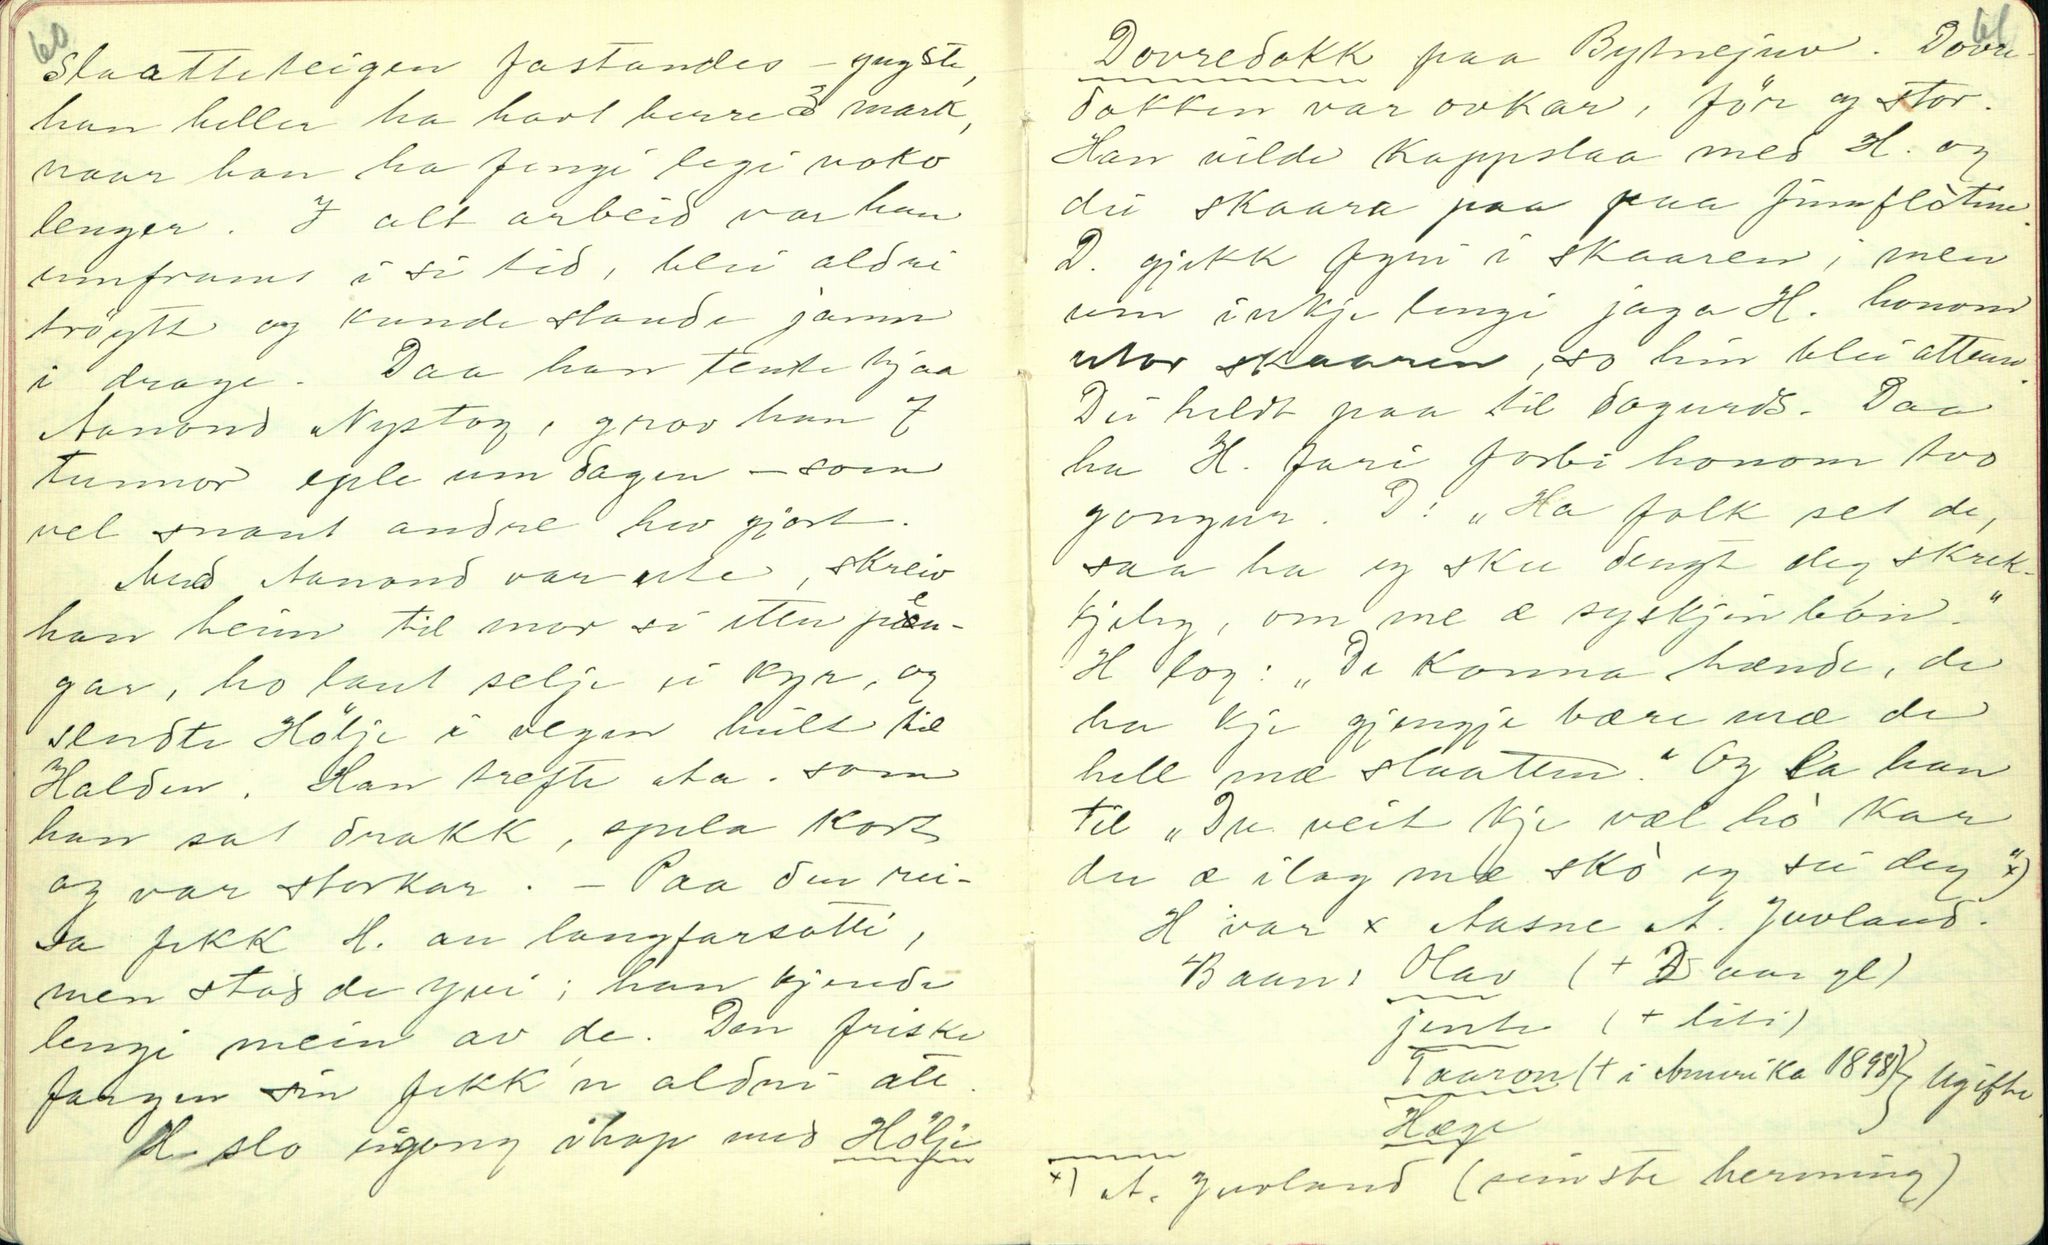 60
Slaatteteigen fastandes – yngste,
han heller ha havt berre 3 mark,
naar han ha fengi legi noko
lenger. I alt arbeid var han
umframt i si tid, blei aldri
tröytt og kunde stande jamn
i drage. Daa han tente hjaa
Aanond Nystog, grov han 7
tunnor eple um dagen – som
vel snaut andre hev gjort.
Med Aanond var ute, skreiv
han heim til mor si etter pen-
gar, ho laut selje ei kyr, og
sendte Hölje i vegen heilt til
Halden. Han trefte Aa. som
han sat drakk, spela kort
og var storkar. – Paa den rei-
sa fekk H. an langfarsótti,
men stod de yvi; han kjende
lengi mein av de. Den friske
fargen sin fekk 'n aldri att.
H. slo eigong ihop med Hölje
61
Dovredokk paa Bytnejuv. Dovre-
dokken var ovkar, för og stor.
Han vilde kappslaa med H. og
dei skaara paa paa fimflötine.
D. gjekk fyri i skaaren, men
um inkje lengi jaga H. honom
utor skaaren, so hin blei attum.
Dei heldt paa til dogurds. Daa
ha H. fari forbi honom tvo
gongur. D: „Ha folk set de,
saa ha eg sku dengt deg skrek-
kjeleg, om me æ syskjinbón."
H log: „De konna hænde, de
ha kje gjengje bære mæ de
hell mæ slaatten." Og la han
til „Du veit kje væl hó kar
du æ ilag mæ skó eg sei deg" x)
H var x Aasne A. Juvland.
Baan: Olav (+ 2 aar gl)
jente (+ liti)
Taaron (+ i Amerika 1898) } Ugifte.
Hæge
x) A. Juvland (seinste herming)